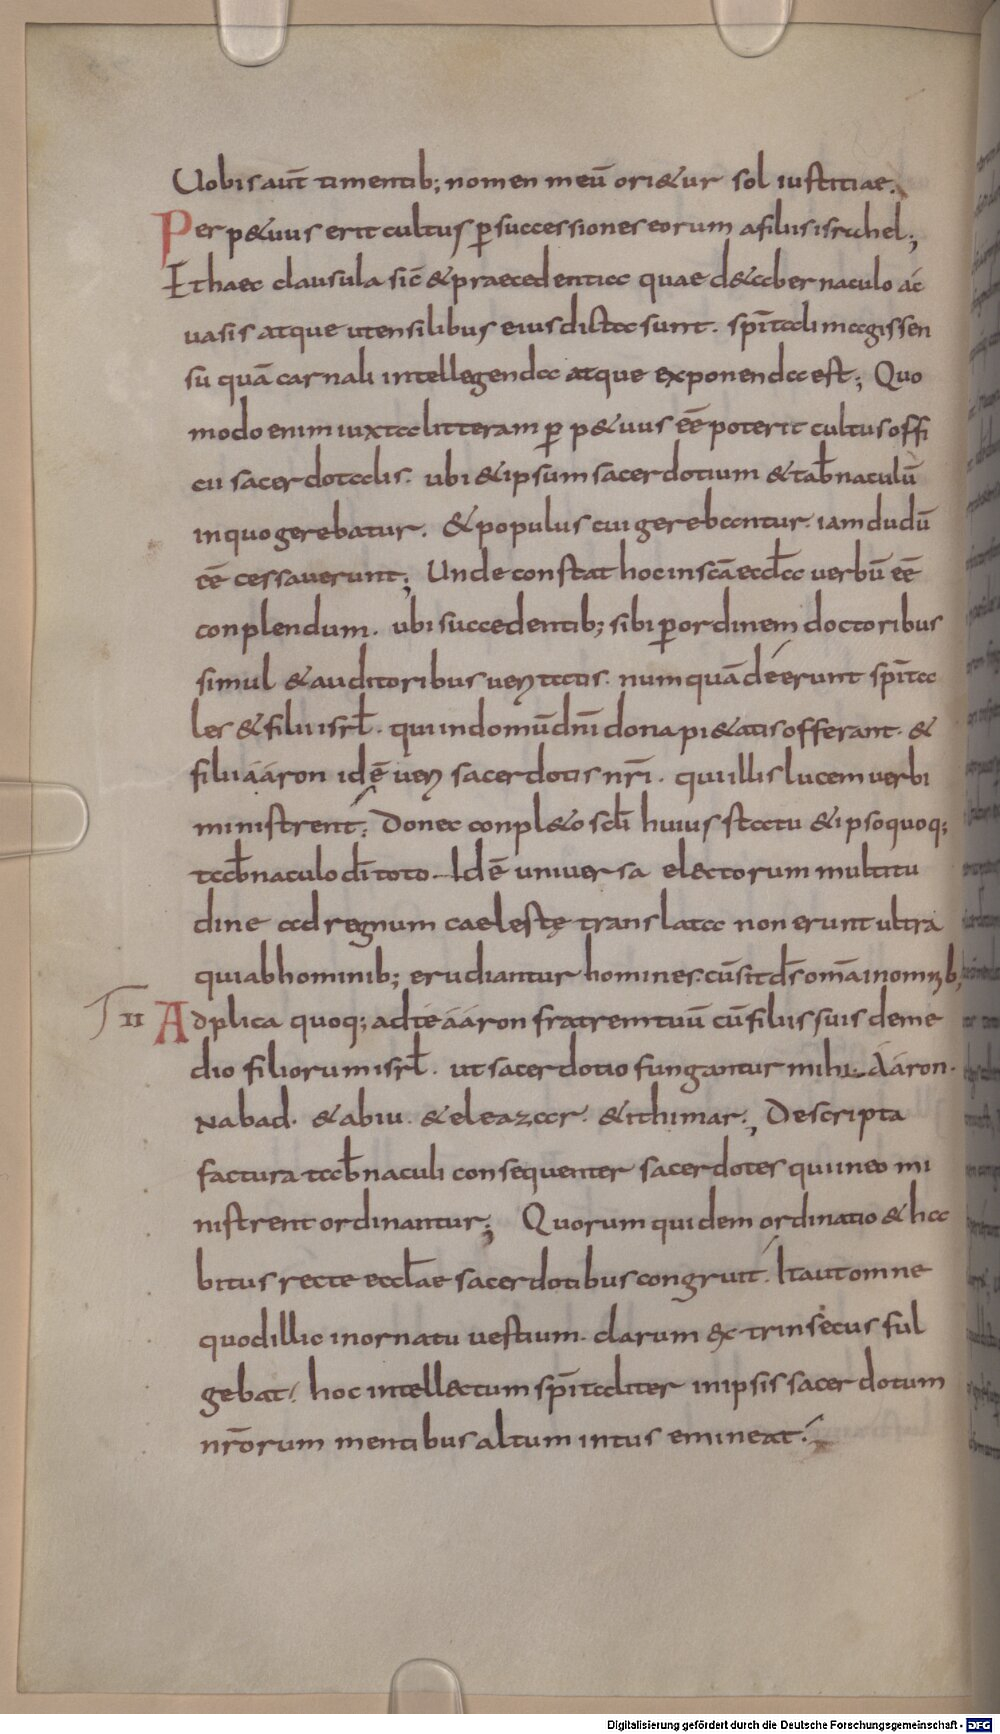 Uobis aut̄ timentib; nomen meū ori&ur sol iustitiae.
Per p&uus erit cultus p̄ successiones eorum afiliis israhel;
Et haec clausula sic̄ & praecedentia quae d&aber naculo ac
uasis atque utensilibus eius dicta sunt. spīt̄ali magis sen
su quā carnali intellegenda atque exponenda est; Quo
modo enim iuxta litteram p̄ p&uus eē poterit cultus offi
cii sacerdotalis. ubi & ipsum sacerdotium & tab̄naculū
in quo gerebatur. & populus cui gerebantur. iamdudū
eē cessauerunt; Unde constat hoc in scā eccl̄a uerbū eē
conplendum. ubi succedentib; sibi p̄ ordinem doctoribus
simul & auditoribus ueritatis. numquā deerunt spīta
les & filii isrl̄. qui in domū dn̄i dona pi&atis offerant. &
filii áaron idē ueri sacerdotis nr̄i. qui illis lucem uerbi
ministrent; Donec conpl&o scl̄i huius statu & ipso quoq;
tab̄naculo dī toto. Idē uniuersa electorum multitu
dine ad regnum caelestę translata non erunt ultra
qui ab hominib; erudiantur homines. cū sit dš omā in omnib;
II Adplica quoq; ad te áaron fratrem tuū cū filiis suis deme
dio filiorum isrl̄. ut sacerdotio fungantur mihi. Áaron.
Nabad. & abiu. & eleazar. & ithimar; Descripta
factura tab̄naculi consequenter sacerdotes qui in eo mi
nistrent ordinantur; Quorum quidem ordinatio & ha
bitus recte eccl̄ae sacerdotibus congruit. Ita ut omne
quod illic in ornatu uestium. clarum extrinsecus ful
gebat. hoc intellectum spīt̄aliter in ipsis sacerdotum
nr̄orum mentibus altum intus emineat.
Digitalisierung gefördert durch die Deutsche Forschungsgemeinschaft - DFG